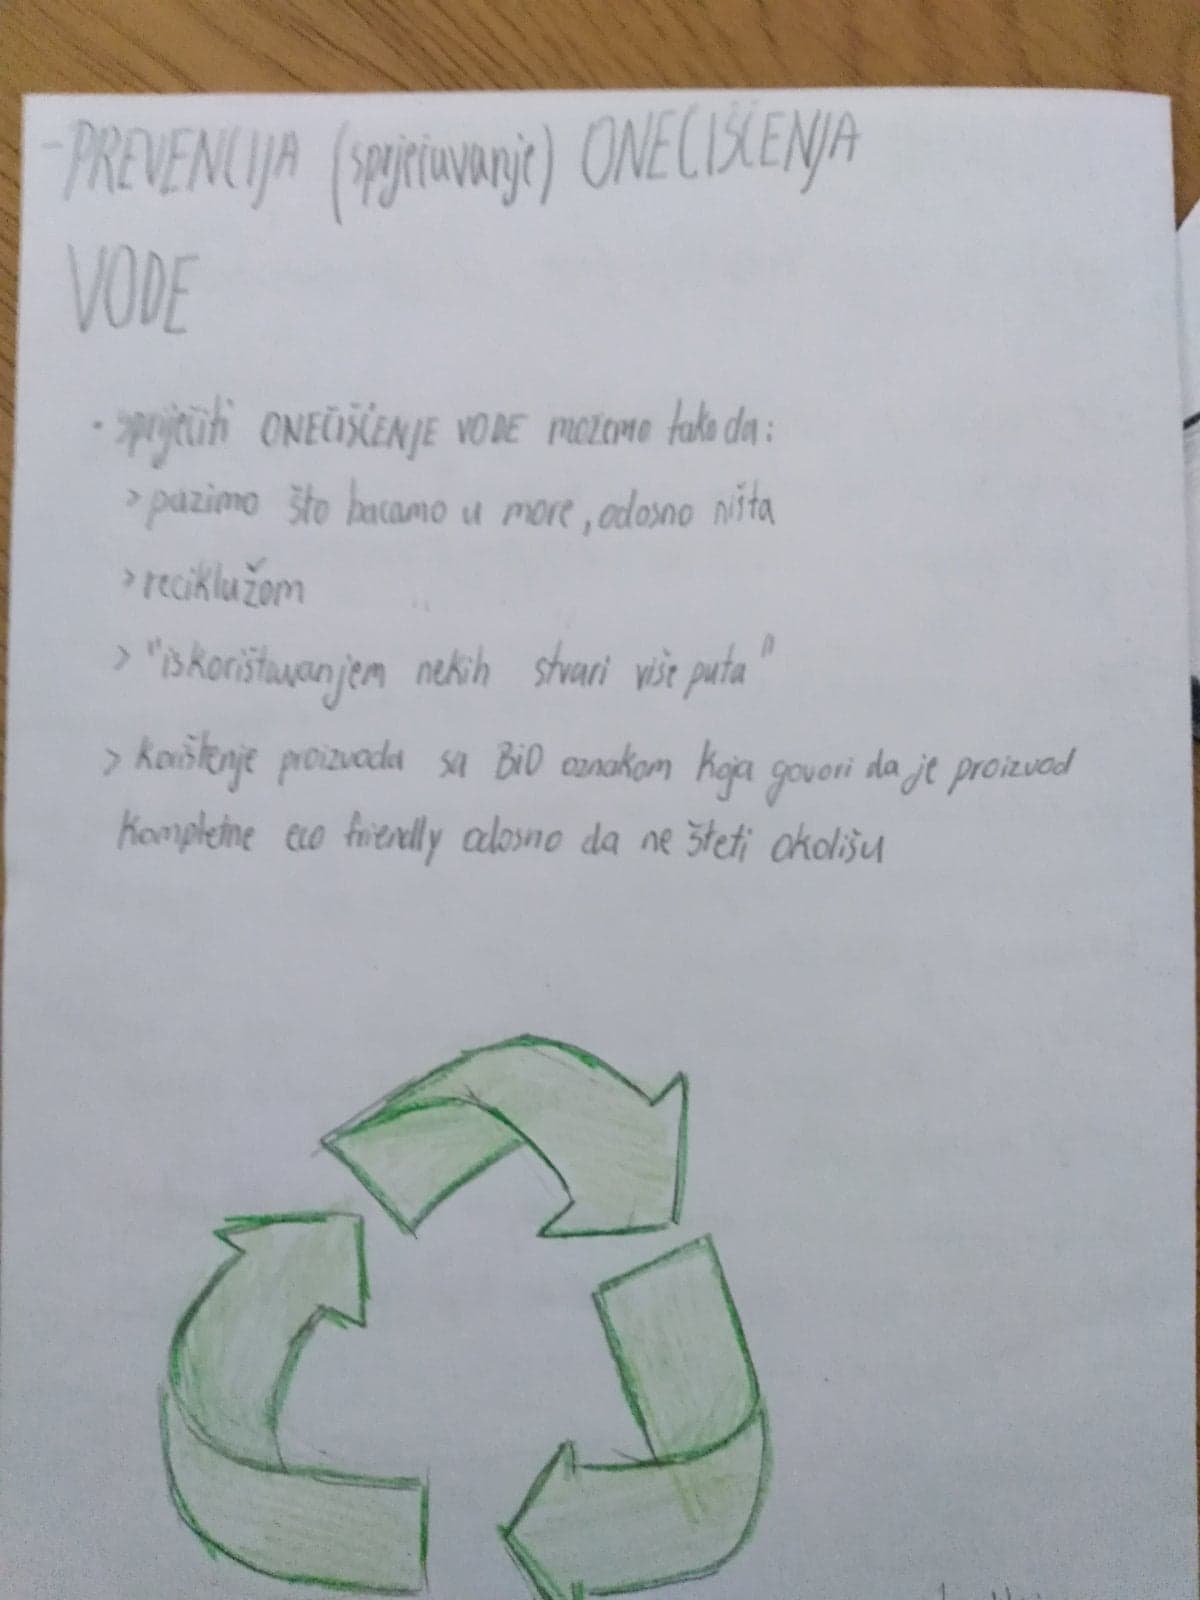 -PREVENCIJA (sprječavanje) ONEČIŠĆENJA
VODE
• spriječiti ONEČIŠĆENJE VODE možemo tako da:
> pazimo što bacamo u more, odosno ništa
> reciklažom
> "iskorištavanjem nekih stvari više puta"
> korištenje proizvoda sa BiO oznakom koja govori da je proizvod
kompletne eco friendly odosno da ne šteti okolišu